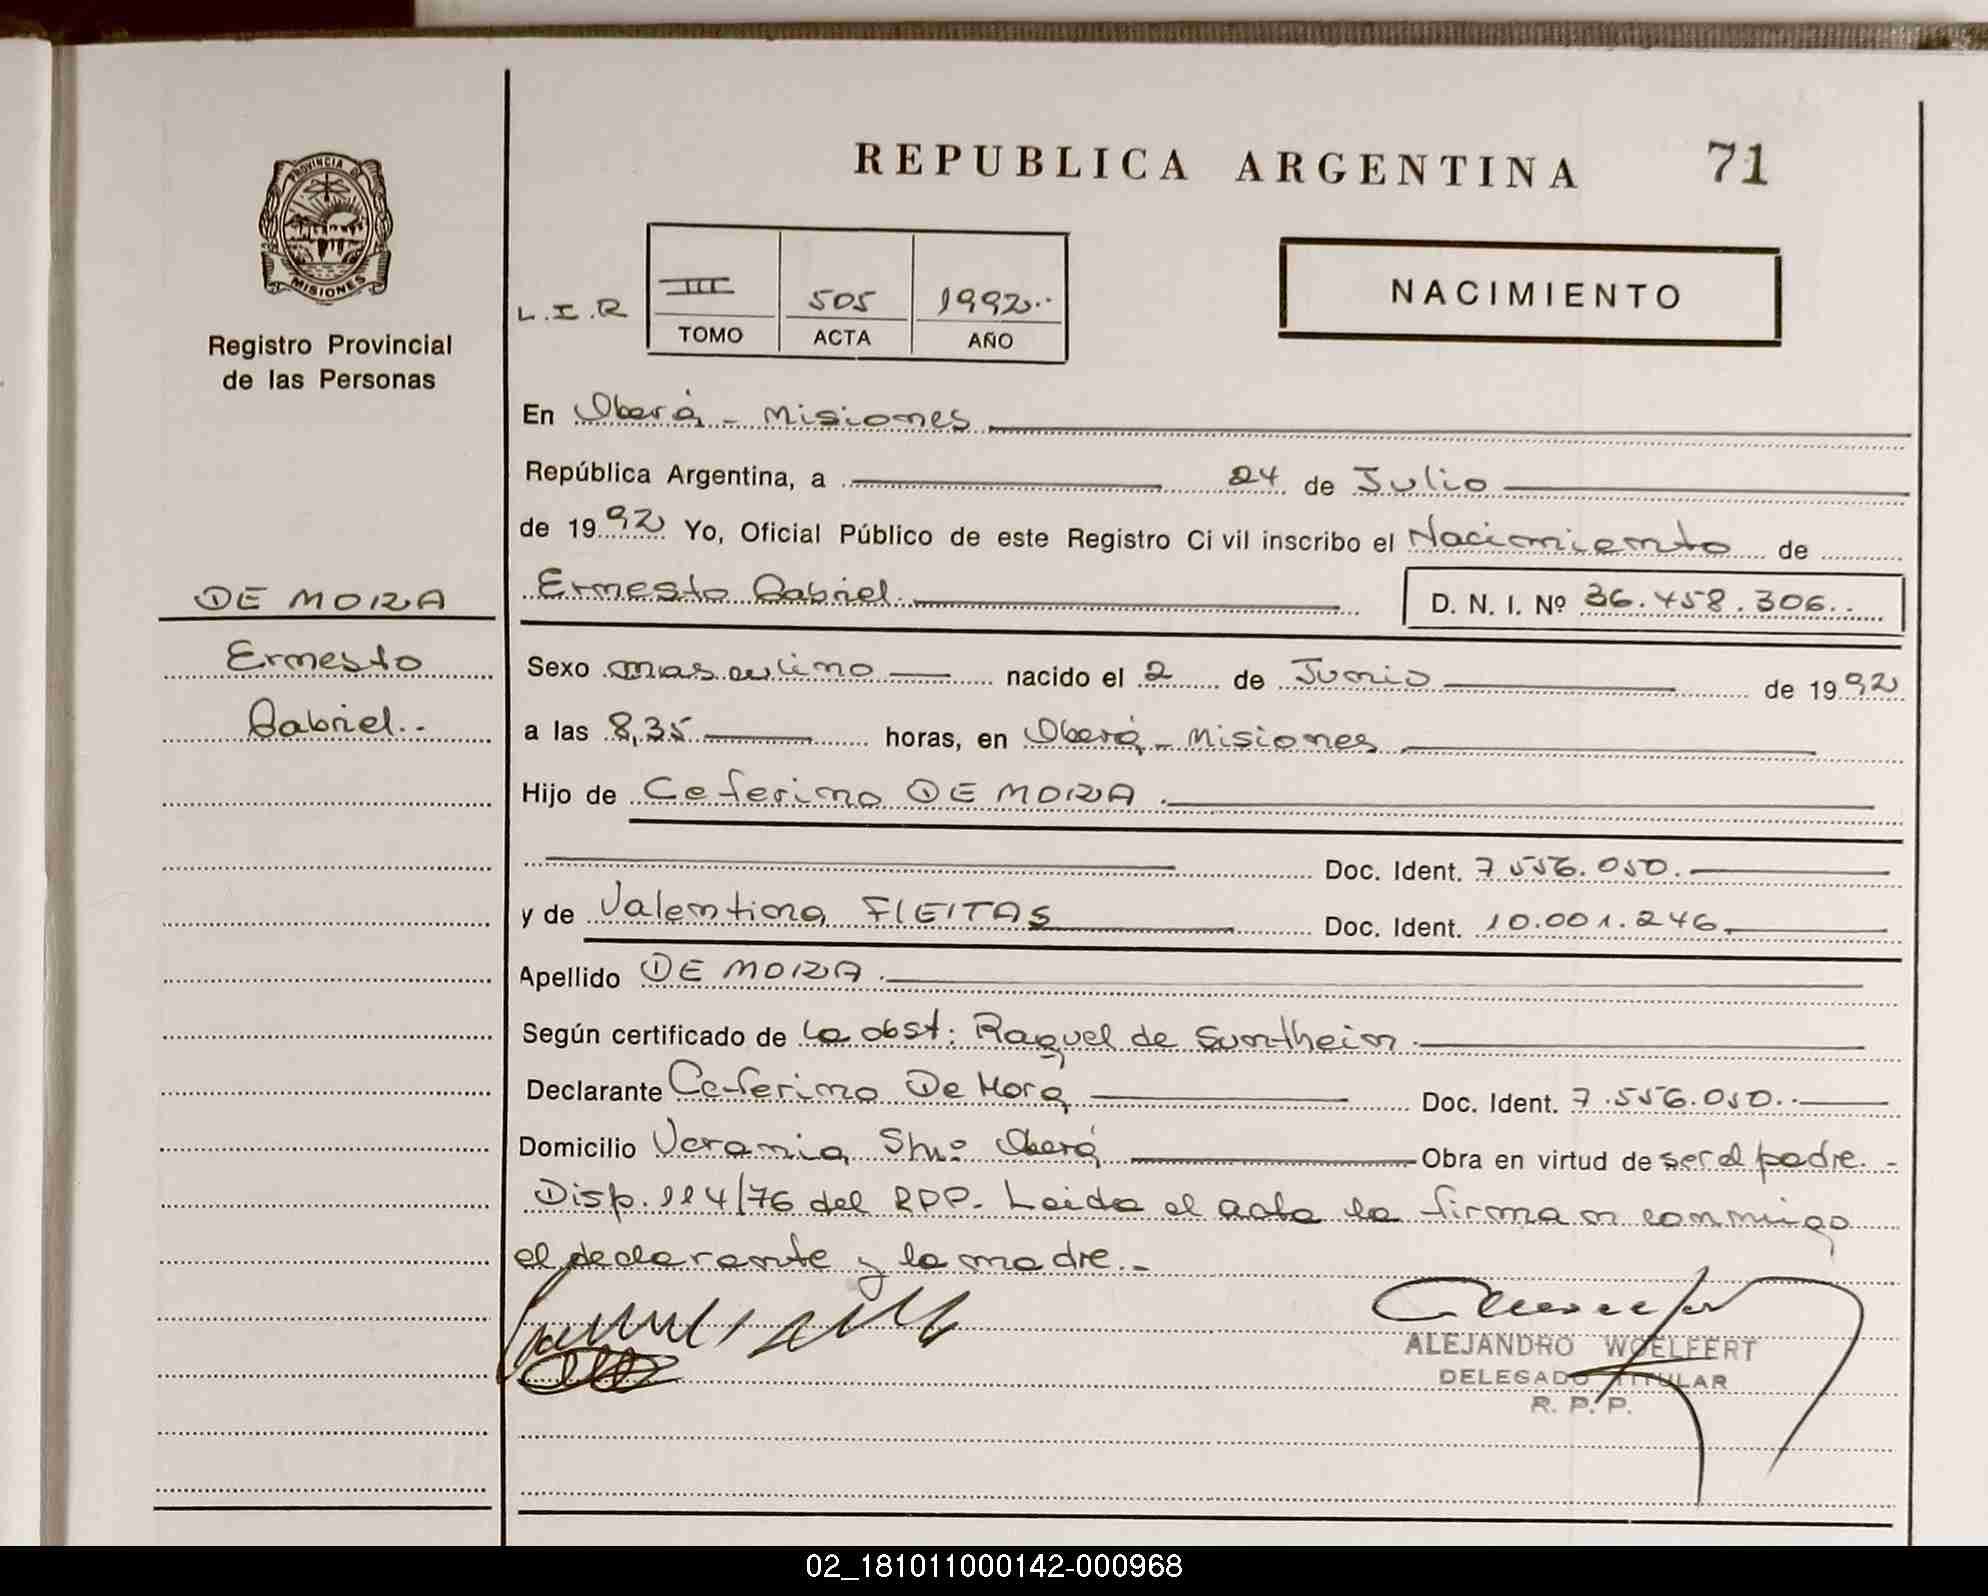 REPUBLICA ARGENTINA 71
PROVINCIA DE
MISIONES
Registro Provincial
de las Personas
L.I.R III 505 1992..
TOMO ACTA AÑO
NACIMIENTO
En Oberá - Misiones
República Argentina, a 24 de Julio
de 1992 Yo, Oficial Público de este Registro Civil inscribo el Nacimiento de
Ernesto Gabriel. D. N. I. Nº 36.458.306..
DE MORA
Ernesto
Gabriel..
Sexo masculino nacido el 2 de Junio de 1992
a las 8,35 horas, en Oberá - Misiones
Hijo de Ceferino DE MORA.
Doc. Ident. 7.556.050.
y de Valentina FLEITAS Doc. Ident. 10.001.246.
Apellido DE MORA.
Según certificado de la obst: Raquel de Suntheim.
Declarante Ceferino De Mora Doc. Ident. 7.556.050..
Domicilio Ucrania Oberá Obra en virtud de ser el padre.-
Disp. 114/76 del RPP. Leida el acta la firman conmigo
el declarante y la madre.-
ALEJANDRO WOELFERT
DELEGADO TITULAR
R. P. P.
02_181011000142-000968